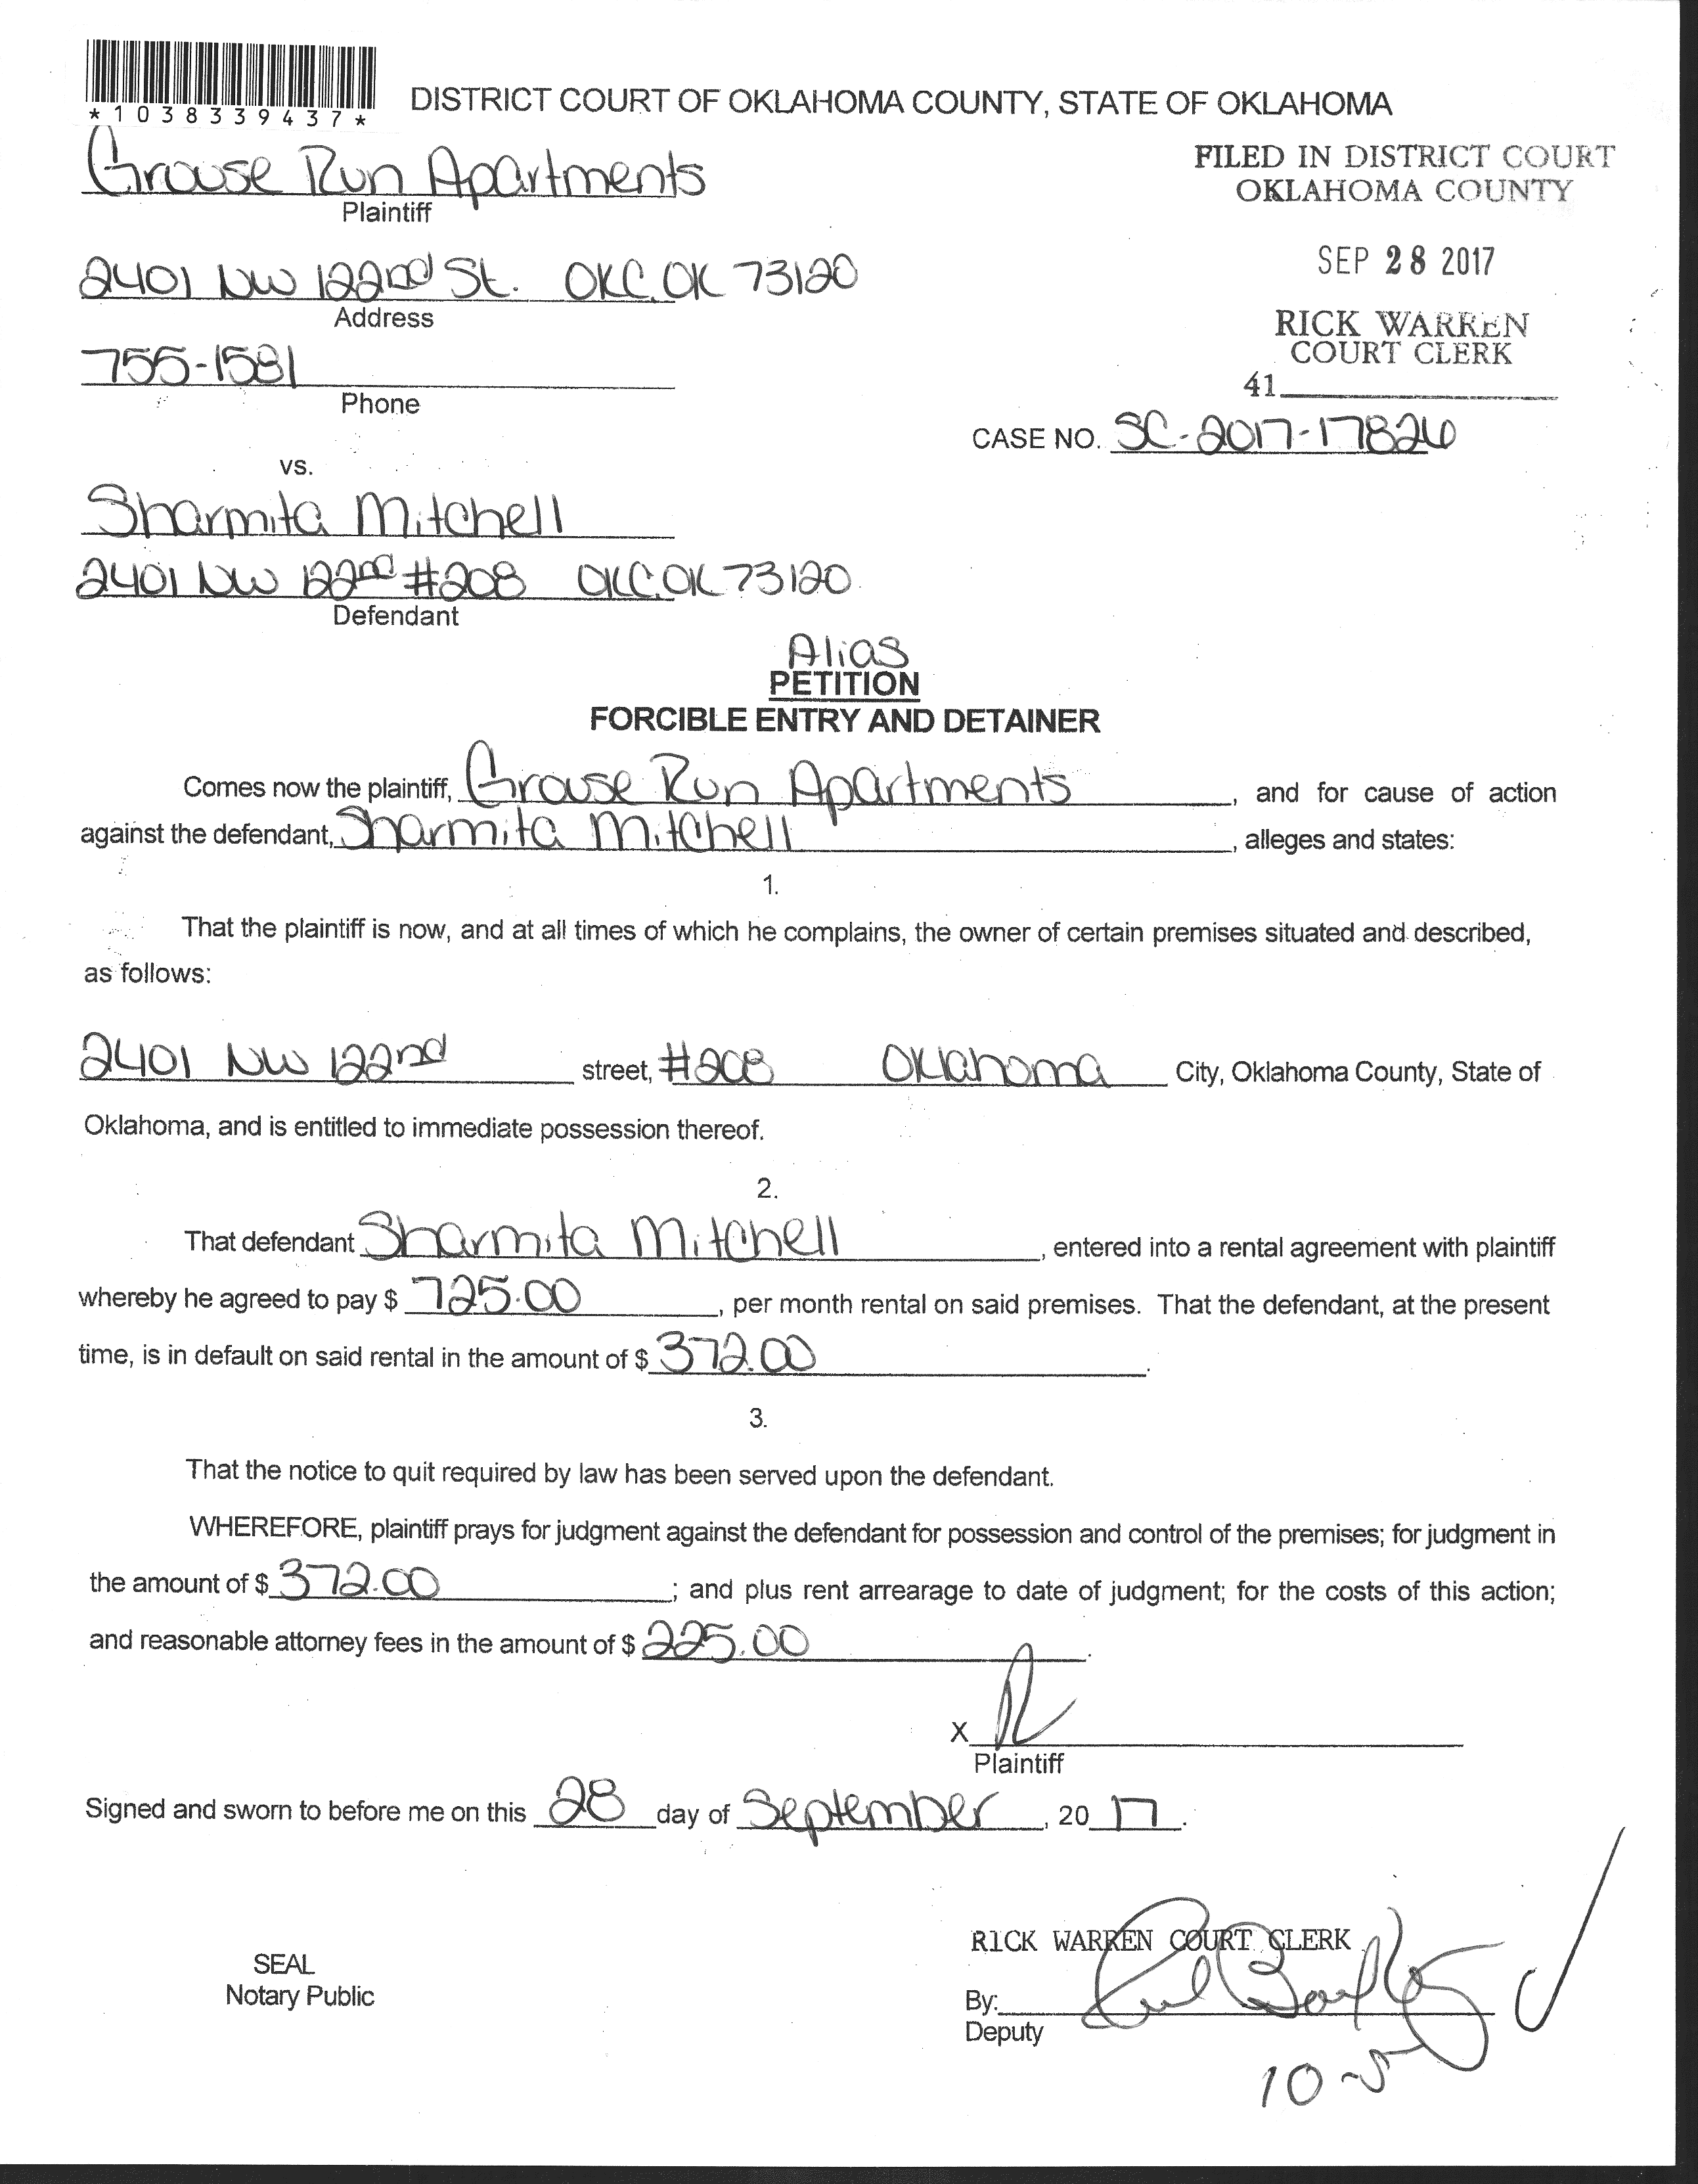 *1038339437*
DISTRICT COURT OF OKLAHOMA COUNTY, STATE OF OKLAHOMA
Grouse Run Apartments
Plaintiff
FILED IN DISTRICT COURT
OKLAHOMA COUNTY
2401 NW 122nd St. OKC, OK 73120
Address
SEP 28 2017
755-1581
Phone
RICK WARREN
COURT CLERK
41
CASE NO. SC-2017-17826
vs.
Sharmita Mitchell
2401 NW 122nd #208 OKC, OK 73120
Defendant
Alias
PETITION
FORCIBLE ENTRY AND DETAINER
Comes now the plaintiff, Grouse Run Apartments, and for cause of action
against the defendant, Sharmita Mitchell, alleges and states:
1.
That the plaintiff is now, and at all times of which he complains, the owner of certain premises situated and described,
as follows:
2401 NW 122nd street, #208 Oklahoma City, Oklahoma County, State of
Oklahoma, and is entitled to immediate possession thereof.
2.
That defendant Sharmita Mitchell, entered into a rental agreement with plaintiff
whereby he agreed to pay $ 725.00, per month rental on said premises. That the defendant, at the present
time, is in default on said rental in the amount of $ 372.00.
3.
That the notice to quit required by law has been served upon the defendant.
WHEREFORE, plaintiff prays for judgment against the defendant for possession and control of the premises; for judgment in
the amount of $ 372.00; and plus rent arrearage to date of judgment; for the costs of this action;
and reasonable attorney fees in the amount of $ 225.00.
X
Plaintiff
Signed and sworn to before me on this 28 day of September, 20 17.
RICK WARREN COURT CLERK
SEAL
Notary Public
By:
Deputy
10-5